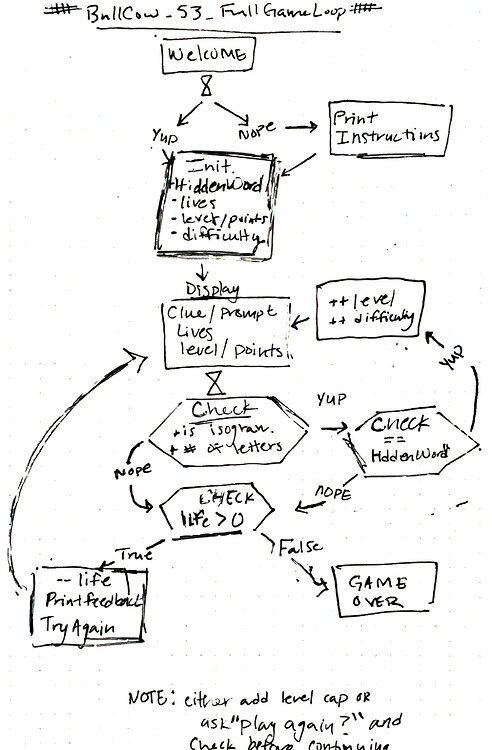 BullCow_53_FullGameLoop
WELCOME
Yup
NOPE
Print
Instructions
Init.
+HiddenWord
- lives
- level/points
- difficulty
Display
Clue/Prompt
Lives
level/points
++ level
++ difficulty
YUP
Check
+ is isogram.
+ # of letters
YUP
Check
==
HiddenWord
NOPE
NOPE
CHECK
life > 0
True
False
-- life
Print feedback
Try Again
GAME
OVER
NOTE: either add level cap OR
ask "play again?" and
Check before continuing